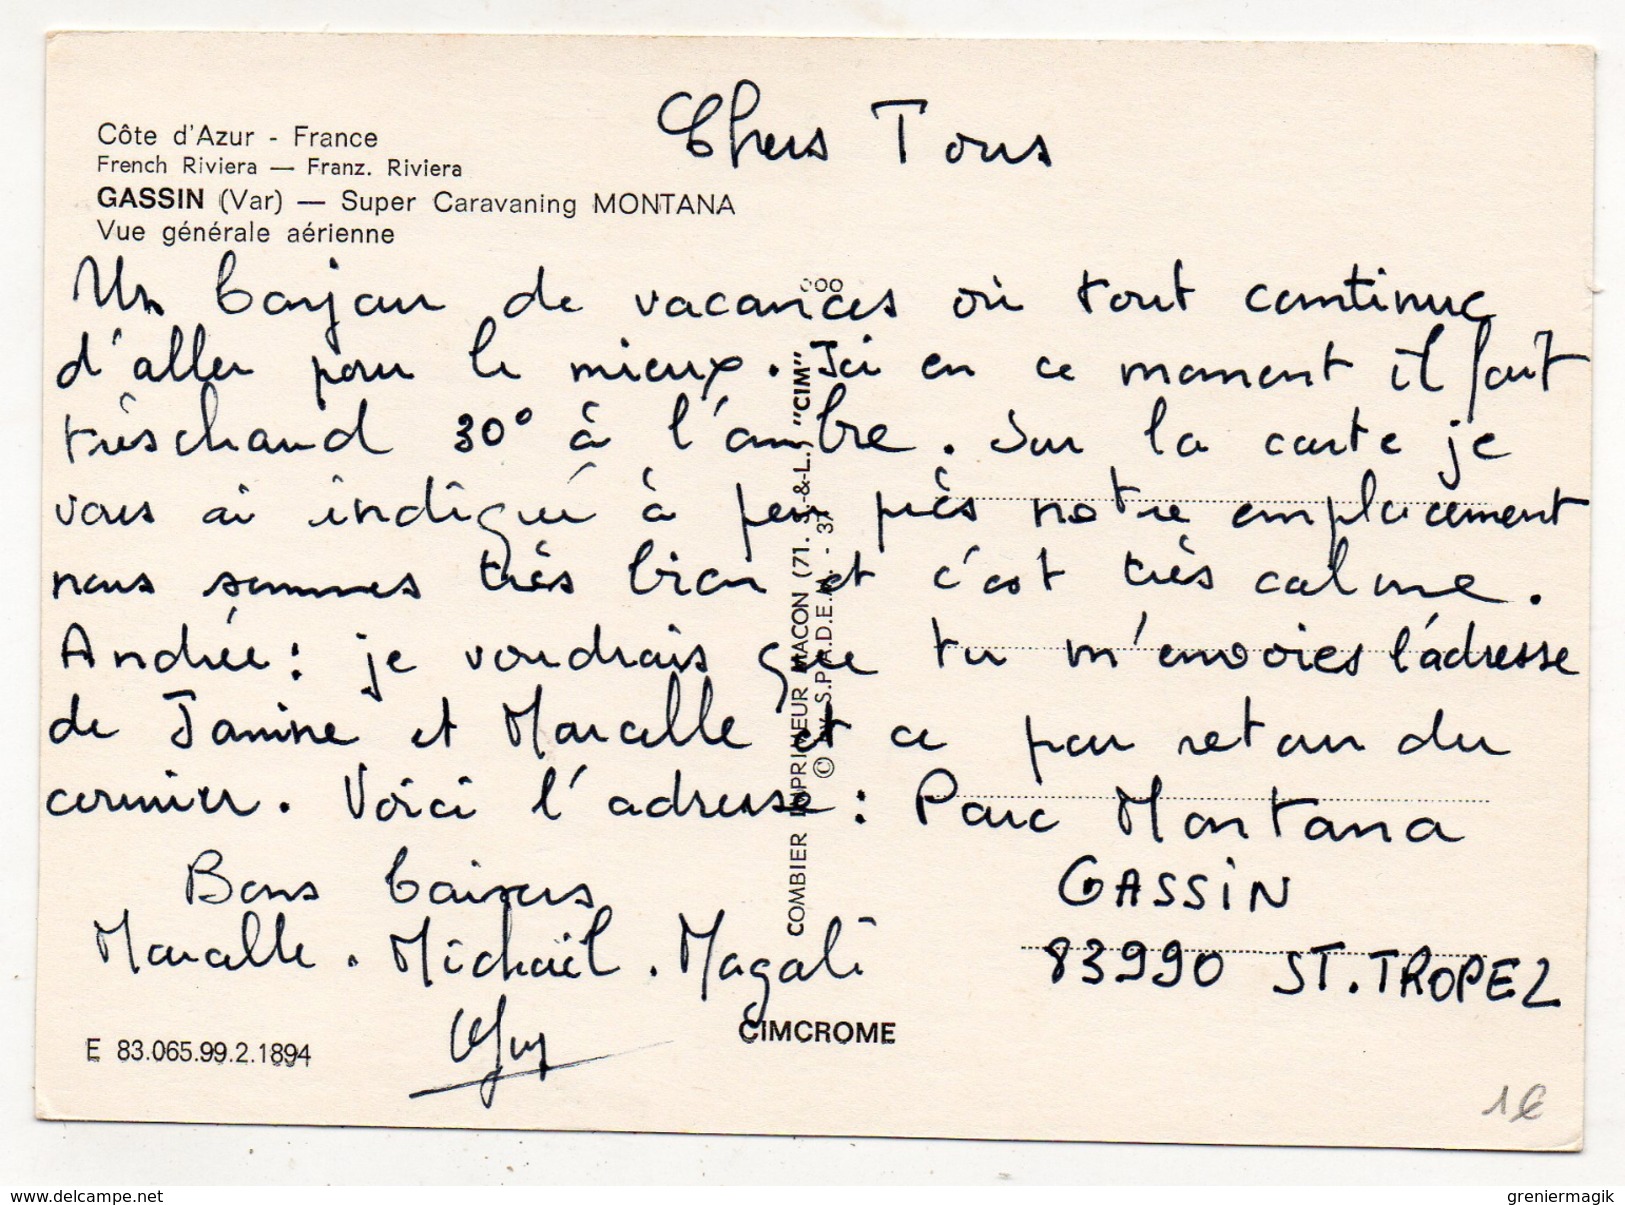 Côte d'Azur - France
French Riviera — Franz. Riviera
GASSIN (Var) — Super Caravaning MONTANA
Vue générale aérienne
Chers Tous
Un bonjour de vacances où tout continue
d'aller pour le mieux. Ici en ce moment il fait
très chaud 30° à l'ombre. Sur la carte je
vous ai indiqué à peu près notre emplacement
nous sommes très bien et c'est très calme.
Andrée: je voudrais que tu m'envoies l'adresse
de Janine et Marcelle et ce par retour du
courrier. Voici l'adresse: Parc Montana
GASSIN
83990 ST. TROPEZ
Bons baisers
Marcelle. Michaël. Magali
COMBIER IMPRIMEUR MACON (71. S.-&-L.) "CIM"
CIMCROME
E 83.065.99.2.1894
1€
www.delcampe.net
greniermagik